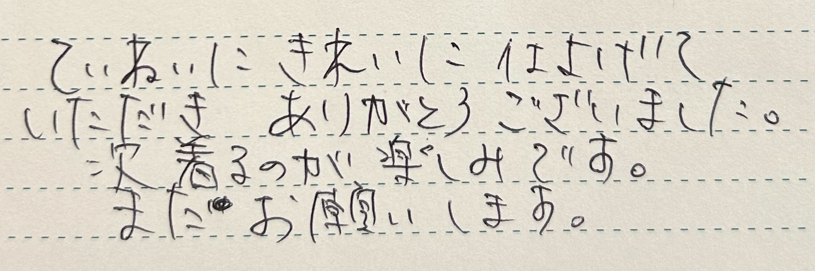 ていねいに きれいに 仕上げて
いただき ありがとうございました。
次着るのが 楽しみです。
また お願いします。